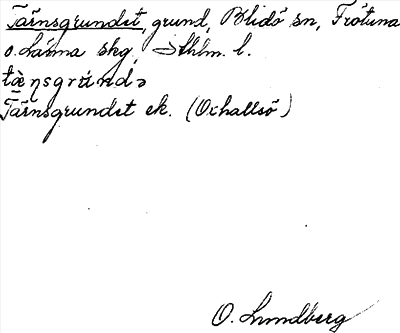 Tärnsgrundet, grund, Blidö sn, Frötuna
o. Länna skg, Sthlm. l.
tæ̀ṇsgrúndə
Tärnsgrundet ek. (Ochallsö)
O. Lundberg